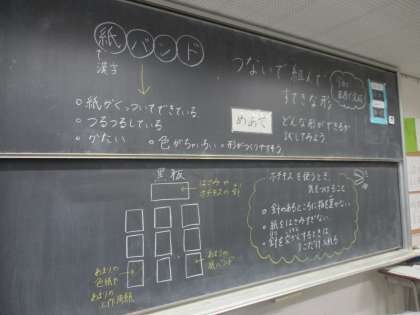 紙バンド
↑
漢字
○紙がくっついてできている
○つるつるしている
○かたい ○色がちゃいろい ○形がつくりやすそう
つないで 組んで
すてきな形
めあて
どんな形ができるか
試してみよう
黒板
はさみ
ホチキスの針
あまりの
色紙
あまりの
工作用紙
あまりの
紙バンド
ホチキスを使うとき、
気をつけること
○針のあるところに指を置かない。
○紙をはさみすぎない。